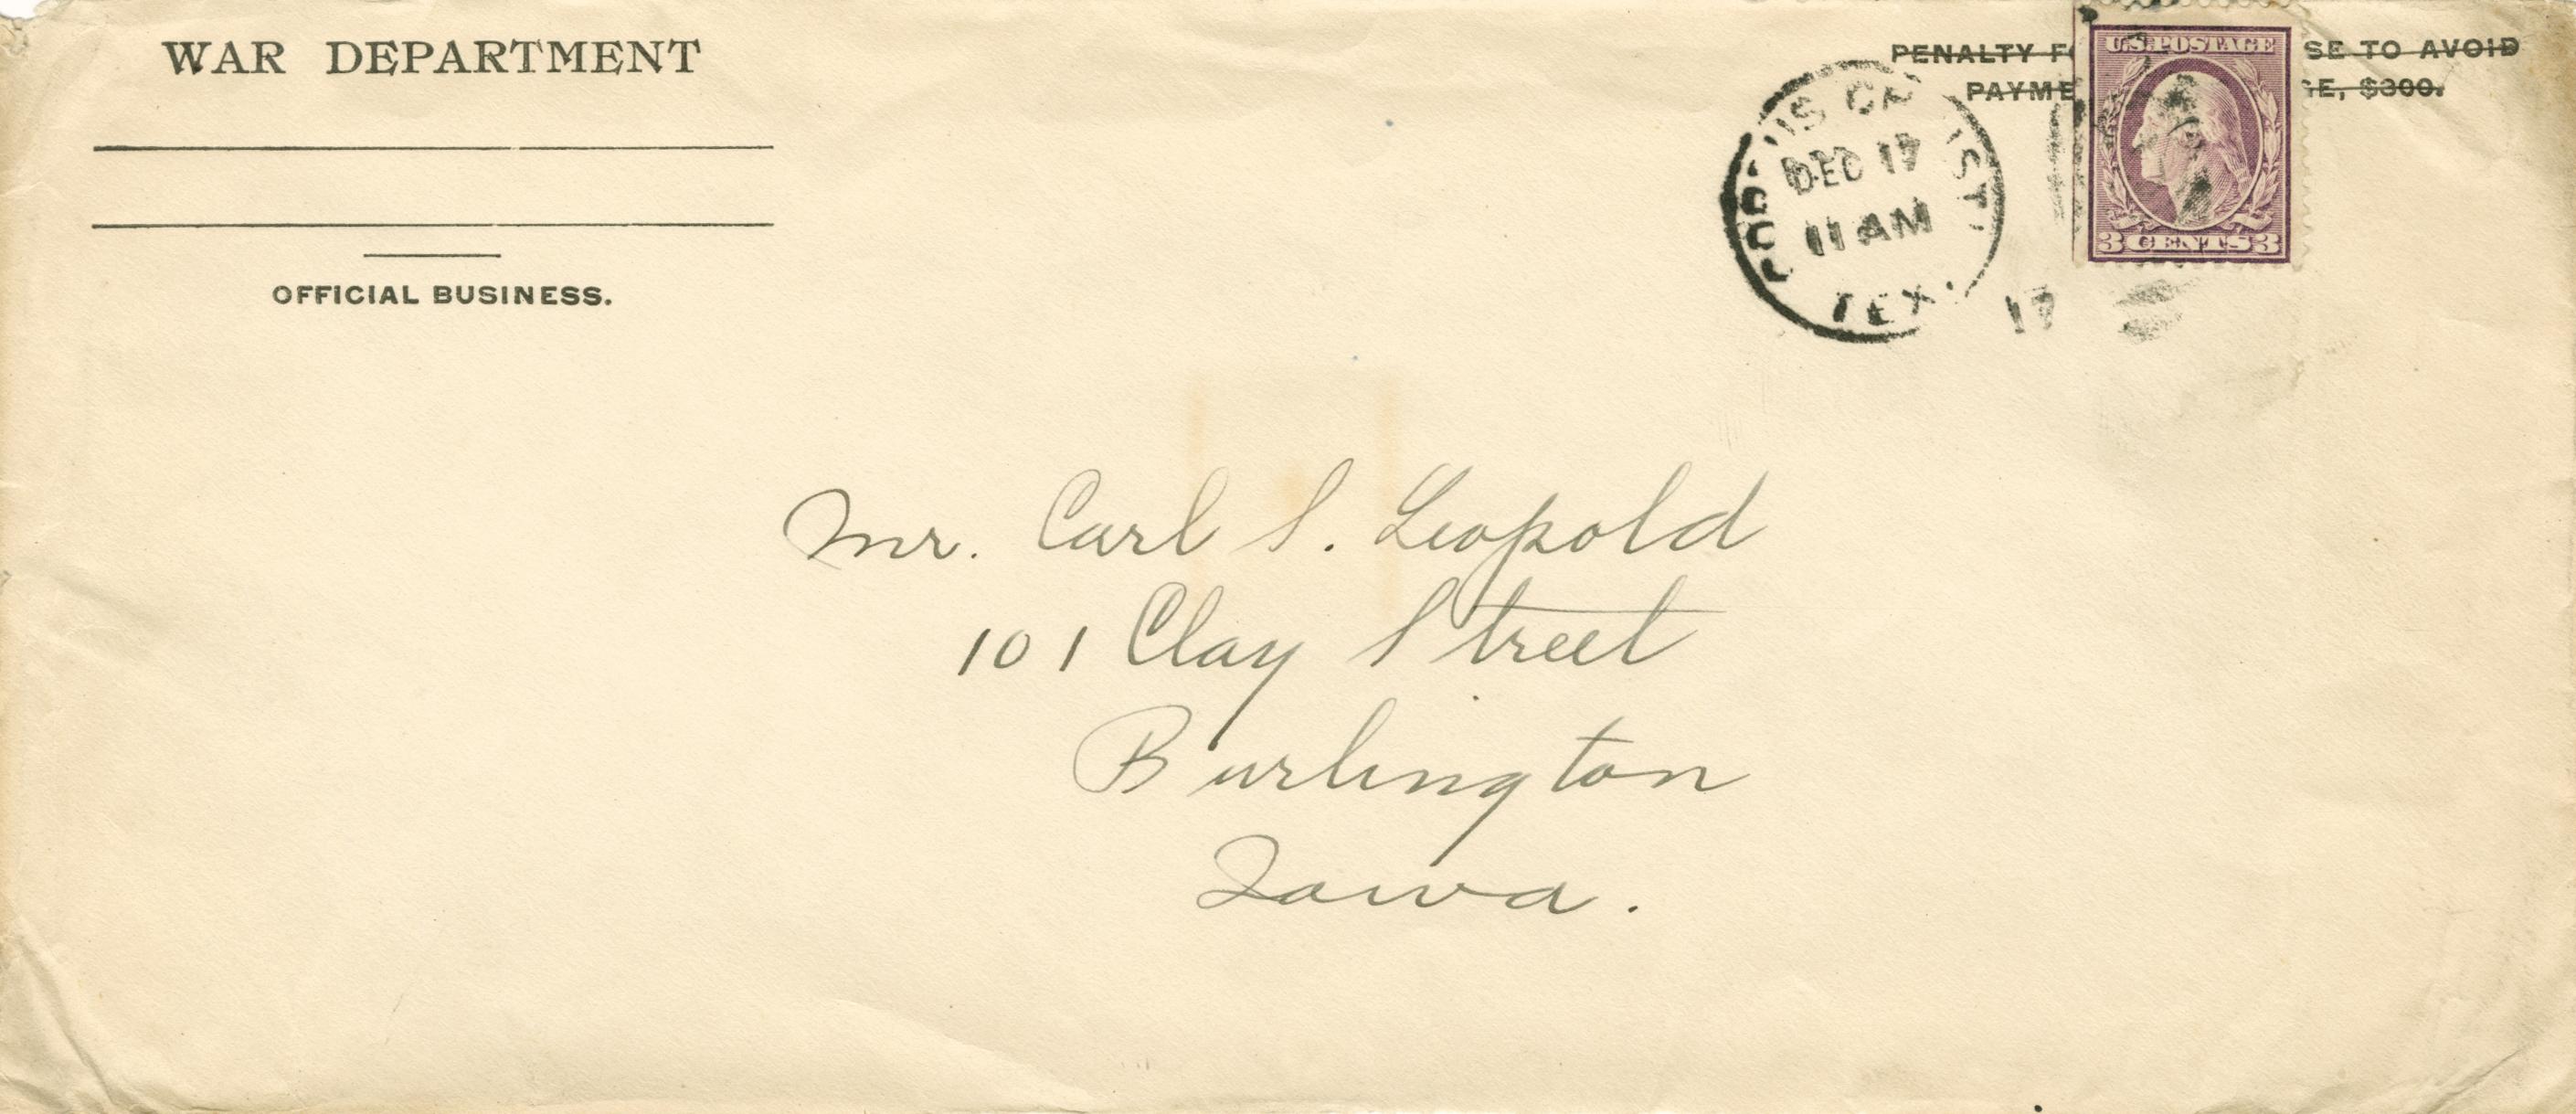 WAR DEPARTMENT
OFFICIAL BUSINESS.
PENALTY SE TO AVOID
PAYME GE, $300.
U.S. POSTAGE
3 CENTS 3
DEC 17
11 AM
TEX.
17
Mr. Carl S. Leopold
101 Clay Street
Burlington
Iowa.